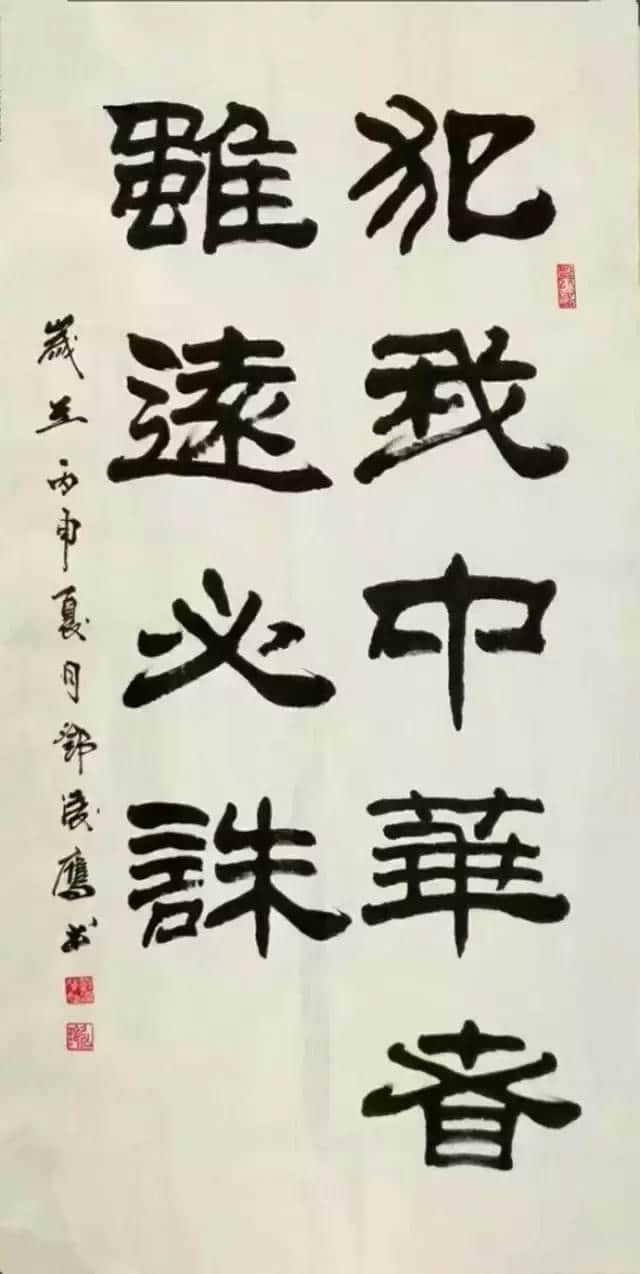 犯我中華者
雖遠必誅
歲在丙申夏月鄧凌鹰书